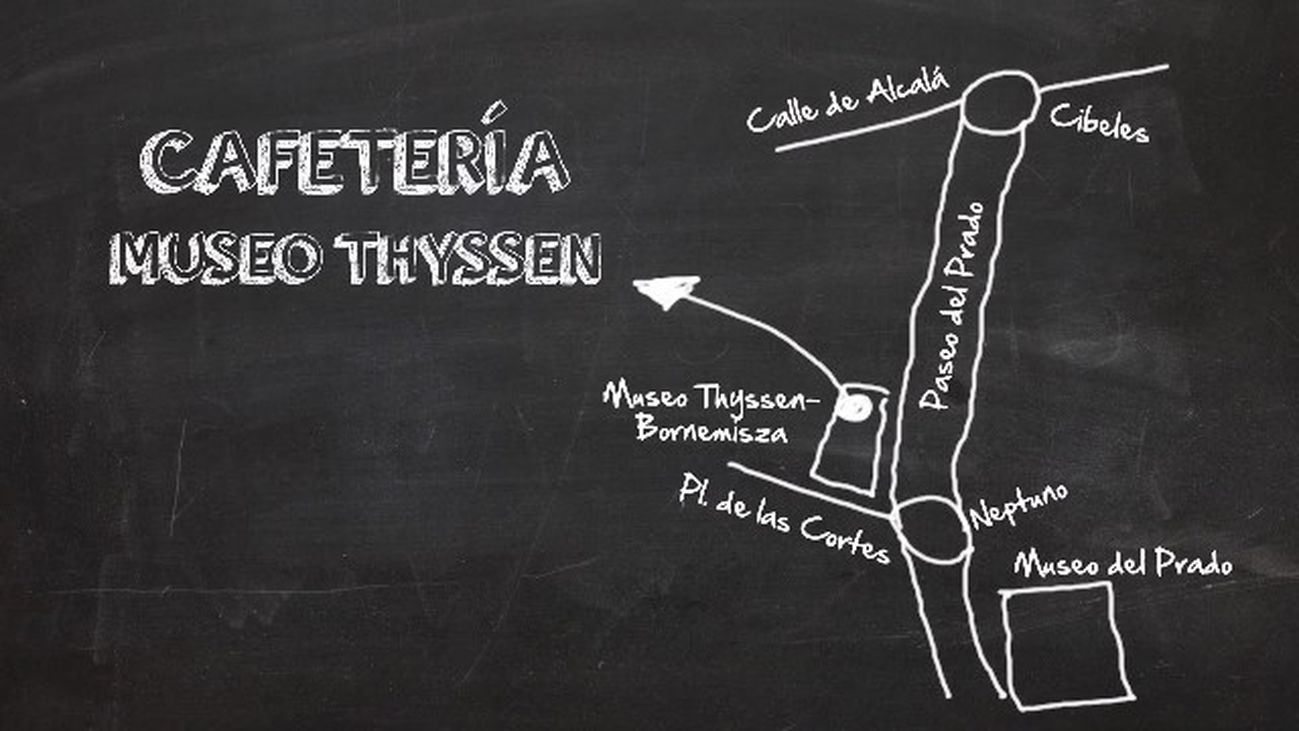 CAFETERÍA
MUSEO THYSSEN
Calle de Alcalá
Cibeles
Paseo del Prado
Museo Thyssen-
Bornemisza
Pl. de las Cortes
Neptuno
Museo del Prado